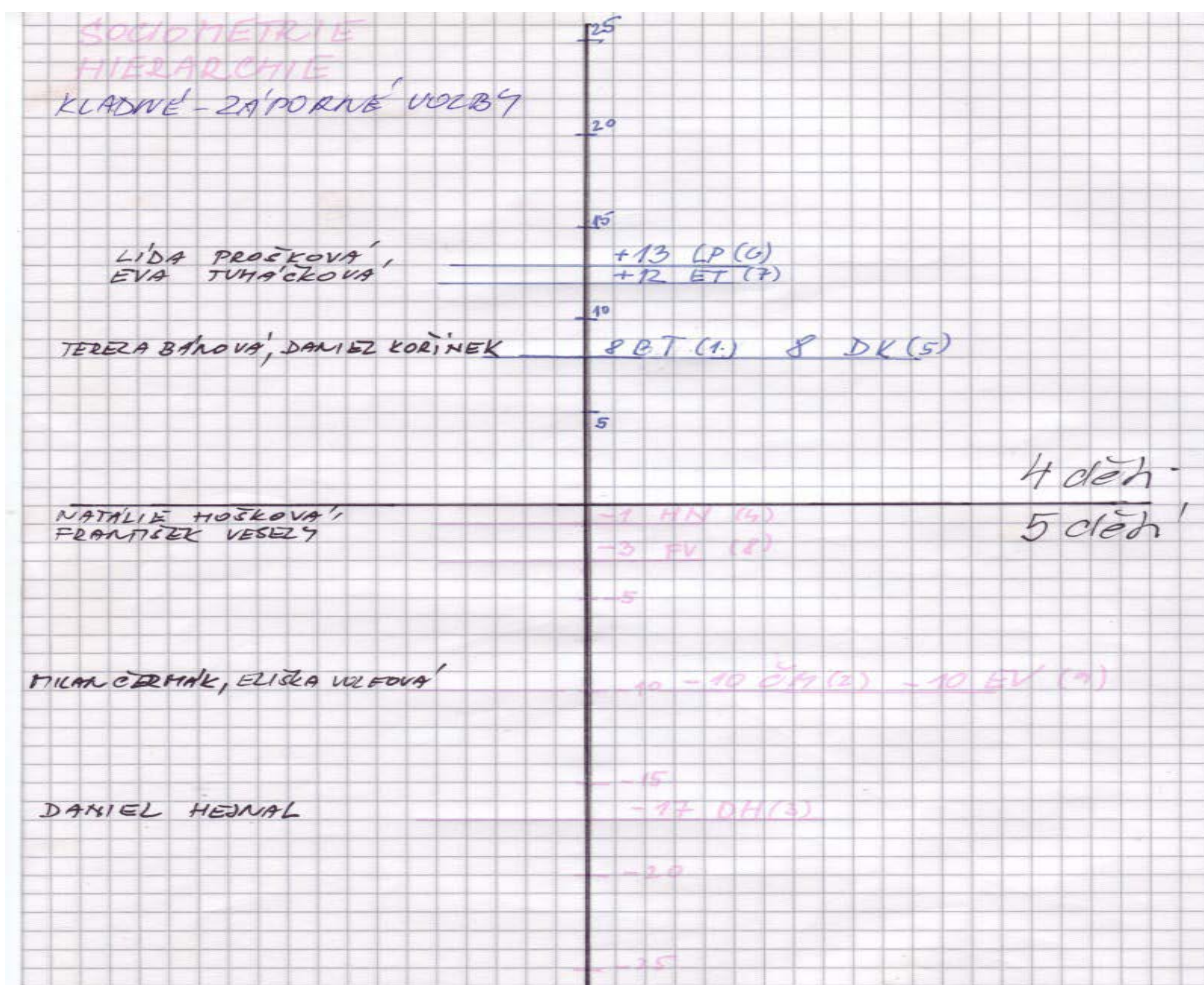 SOCIOMETRIE
HIERARCHIE
KLADNÉ - ZÁPORNÉ VOLBY
25
20
15
LÍDA PROŠKOVÁ, +13 LP (6)
EVA TUMÁČKOVA +12 ET (7)
10
TEREZA BÁNOVÁ, DANIEL KOŘÍNEK 8 BT (1.) 8 DK (5)
5
4 děti
NATÁLIE HOŠKOVÁ, -1 HN (4)
5 dětí
FRANTIŠEK VESELÝ -3 FV (8)
-5
MILAN ČERMÁK, ELIŠKA VOLFOVÁ -10 -10 ČM (2) -10 EV (9)
-15
DANIEL HEJNAL -17 DH (3)
-20
-25